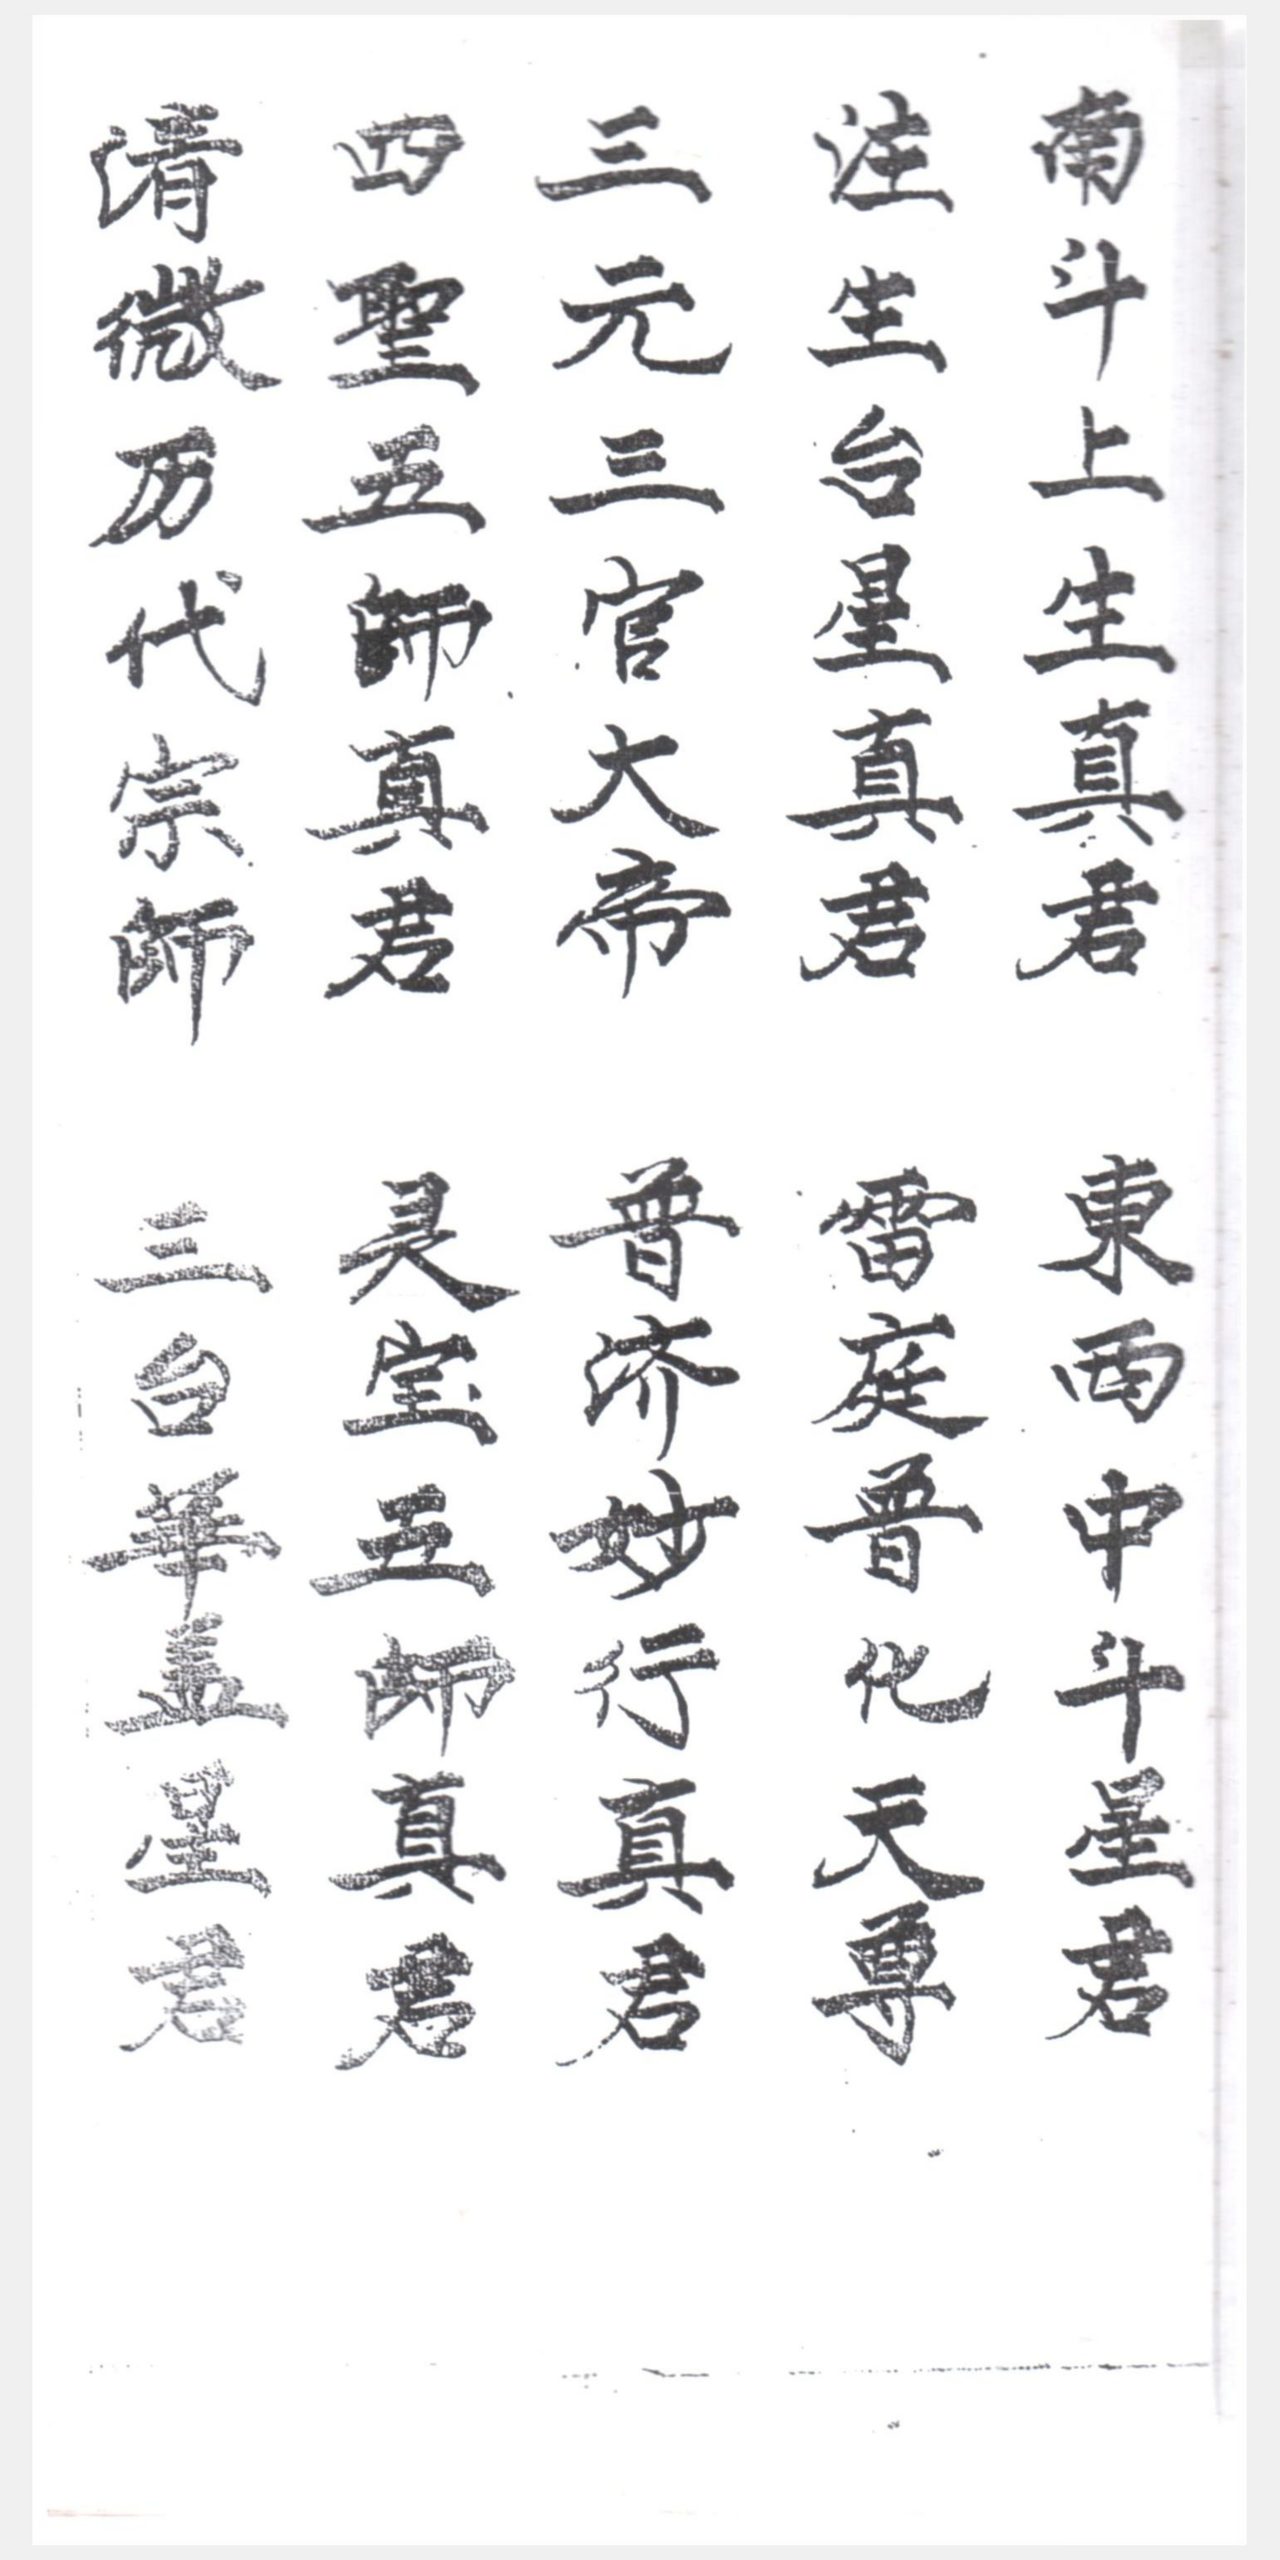 南斗上生真君　東西中斗星君
注生台星真君　雷庭普化天尊
三元三官大帝　普济妙行真君
四聖五師真君　灵宝五師真君
清微历代宗師　三台華盖星君